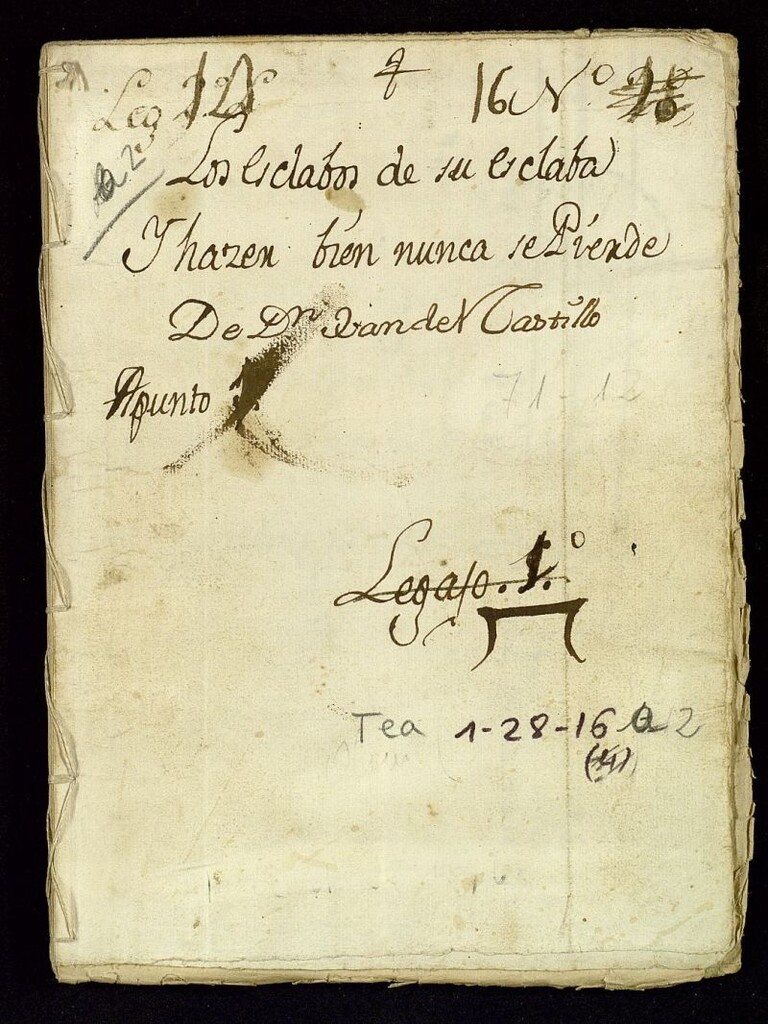 Leg
16 Nº
a 2º
Los esclabos de su esclaba
Y hazer bien nunca se Pierde
De Dn Juan del Castillo
Apunto 1º
71-12
Legajo. 1.º
Tea 1-28-16 a 2